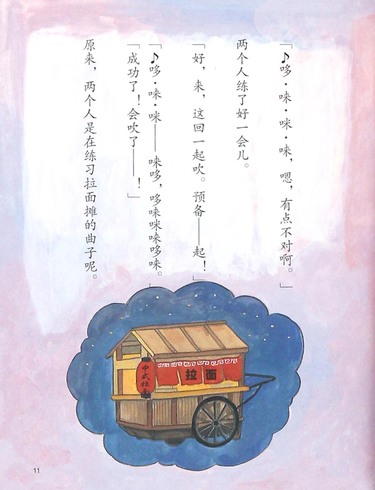 「♪哆·唻·咪·唻，嗯，有点不对啊。」
两个人练了好一会儿。
「好，来，这回一起吹。预备——起！」
「♪哆·唻·咪——唻哆，哆唻咪唻哆唻。」
「成功了！会吹了——！」
原来，两个人是在练习拉面摊的曲子呢。
中式拉面
拉面
11